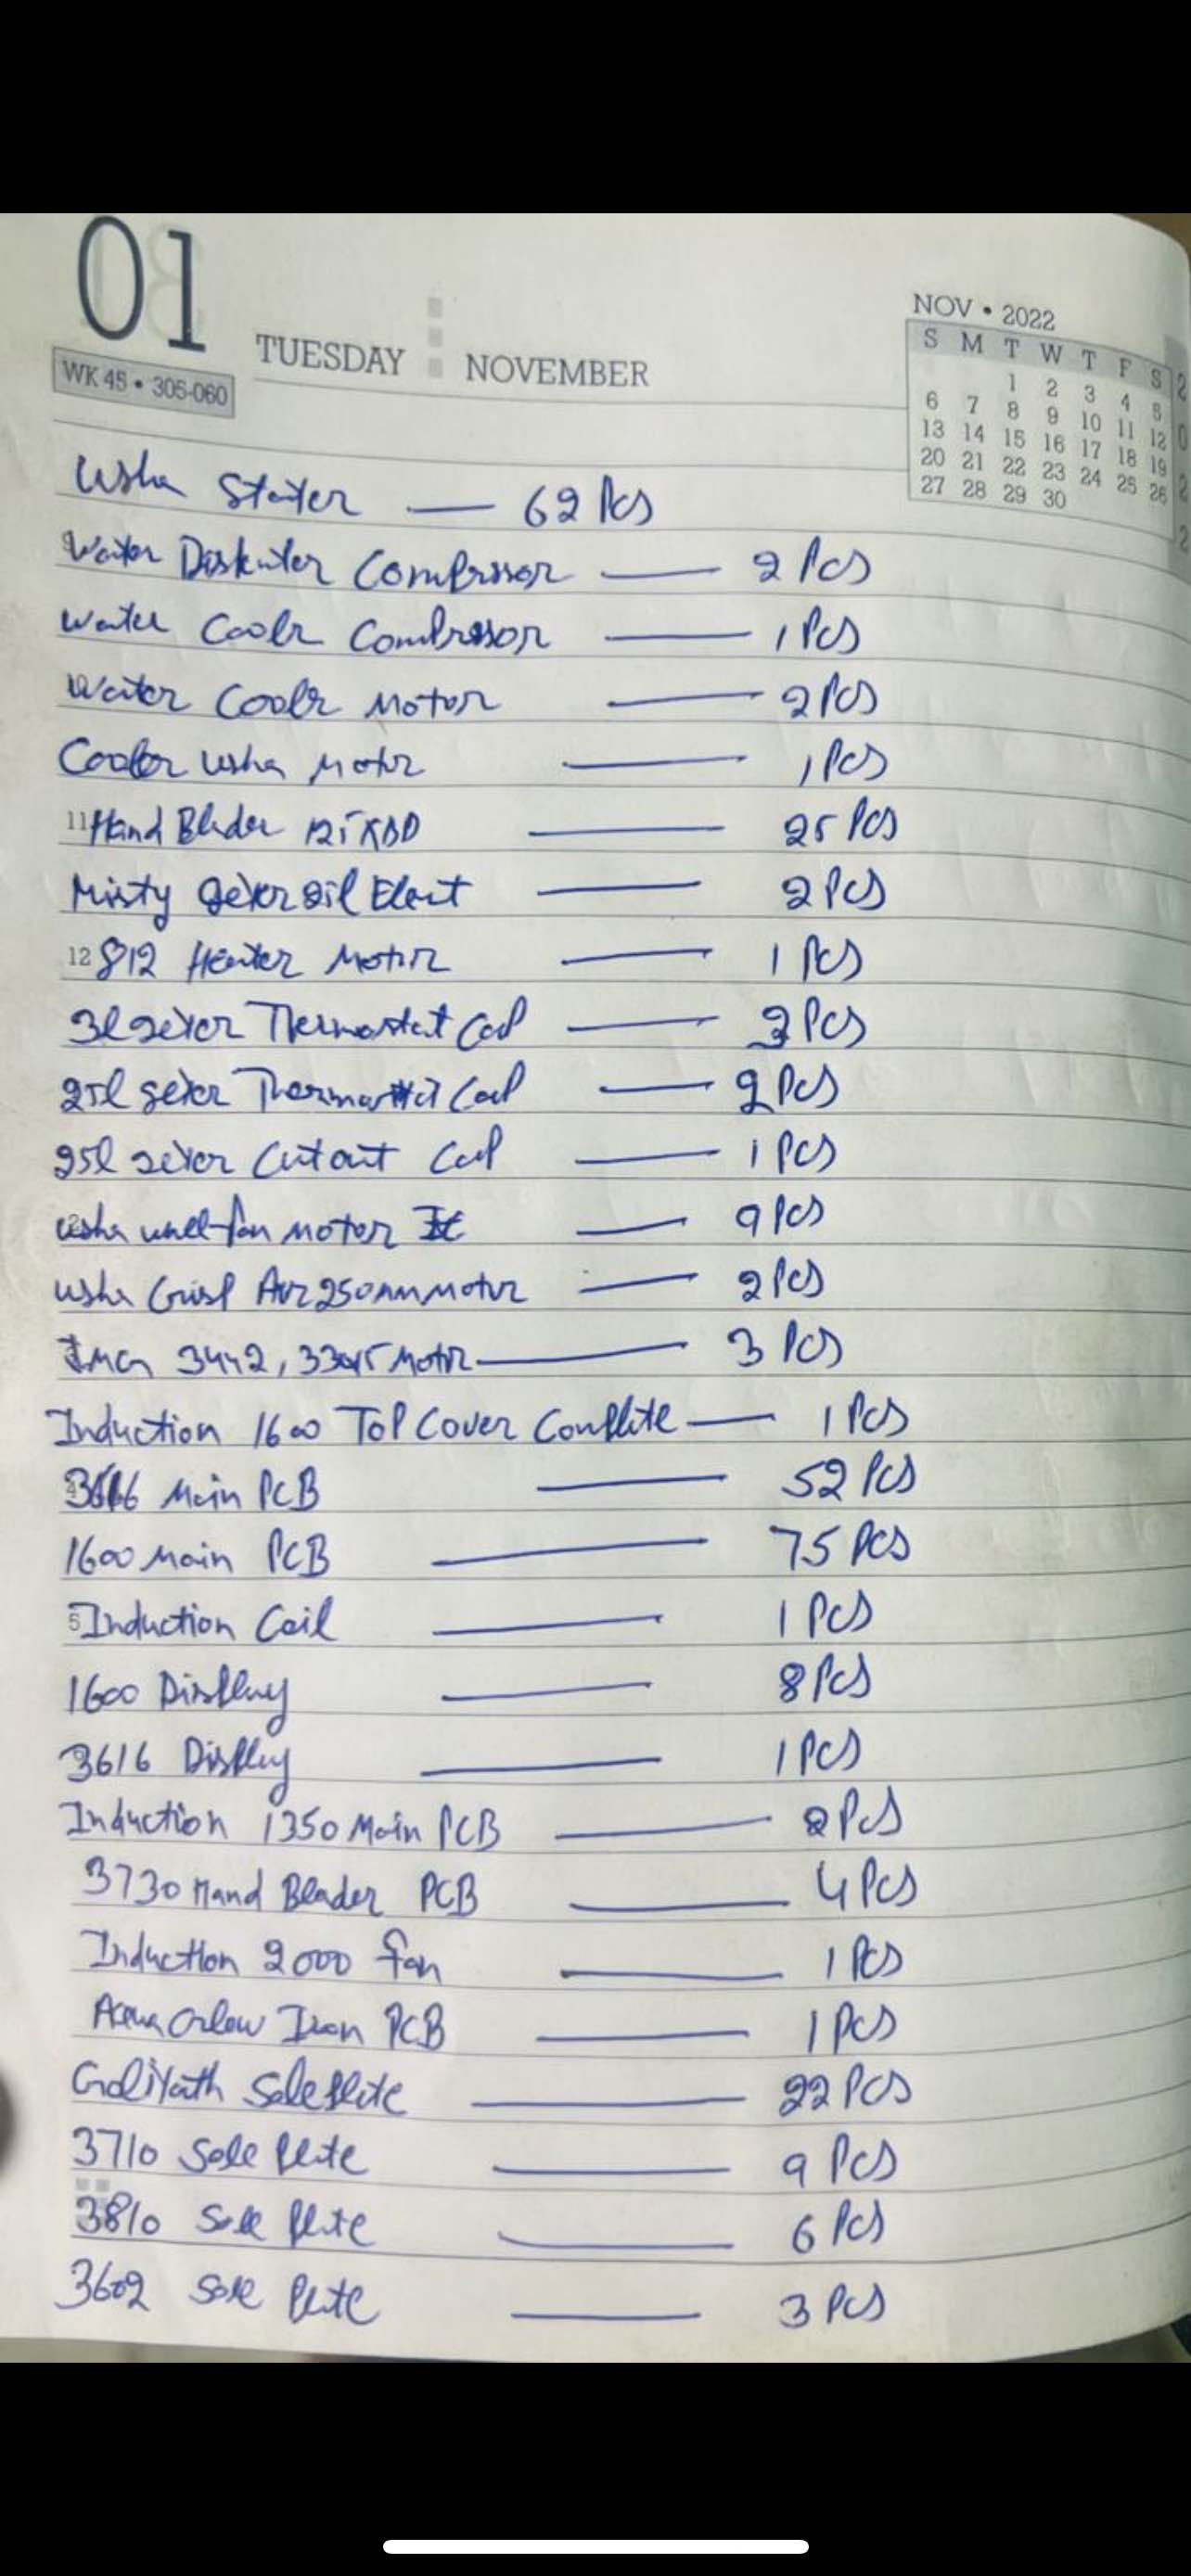 01
TUESDAY NOVEMBER
WK 45 • 305-060
NOV • 2022
S M T W T F S
1 2 3 4 5
6 7 8 9 10 11 12
13 14 15 16 17 18 19
20 21 22 23 24 25 26
27 28 29 30
Usha Stater — 62 Pcs
Water Compressor — 2 Pcs
Water Coolr Compressor — 1 Pcs
Water Coolr Motor — 2 Pcs
Cooler Usha Motor — 1 Pcs
11 Hand Blader — 25 Pcs
Misty — 2 Pcs
12 812 Heater Motor — 1 Pcs
3l Thermostat — Pcs
25l — 2 Pcs
25l Cutout — 1 Pcs
Usha wall fan motor — 9 Pcs
Usha 250mm Motor — 2 Pcs
3442, Motor — 3 Pcs
Induction 1600 Top Cover Complite — 1 Pcs
Main PCB — 52 Pcs
1600 Main PCB — 75 Pcs
5 Induction Coil — 1 Pcs
1600 Display — 8 Pcs
3616 Display — 1 Pcs
Induction 1350 Main PCB — 2 Pcs
3730 Hand Blader PCB — 4 Pcs
Induction 2000 fan — 1 Pcs
Iron PCB — 1 Pcs
Goliyath Sole Plate — 22 Pcs
3710 Sole Plate — 9 Pcs
3810 Sole Plate — 6 Pcs
3602 Sole Plate — 3 Pcs